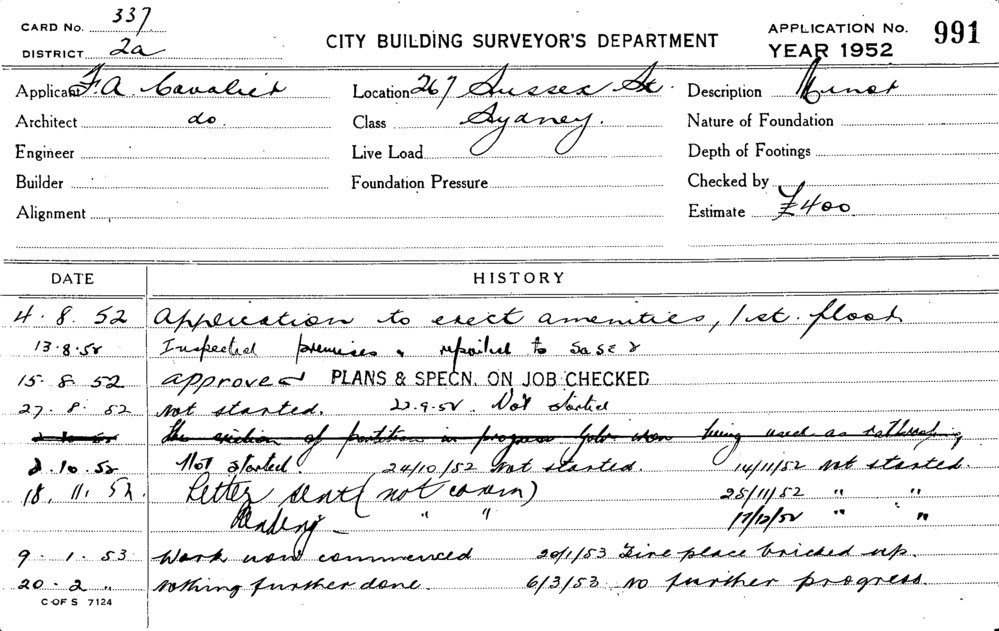 CARD No. 337
DISTRICT 2a
CITY BUILDING SURVEYOR'S DEPARTMENT
APPLICATION No. 991
YEAR 1952
Applicant F A Cavalier
Location 267 Sussex St.
Description Minor
Architect do.
Class Sydney.
Nature of Foundation
Engineer
Live Load
Depth of Footings
Builder
Foundation Pressure
Checked by
Alignment
Estimate £400
DATE HISTORY
4. 8. 52 Application to erect amenities, 1st. floor
13.8.52 Inspected premises & reported to
15. 8. 52 approved PLANS & SPECN. ON JOB CHECKED
27. 8. 52 Not started. 22.9.52. Not started
2.10.52 The erection of partition in progress being used as
2.10.52 Not started. 24/10/52 Not started. 14/11/52 Not started.
18. 11. 52. Letter sent (not comm) 25/11/52 " "
Pending - " " 17/12/52 " "
9. 1. 53 Work now commenced 20/1/53 Fire place bricked up.
20. 2 " Nothing further done. 6/3/53 No further progress.
C OF S 7124